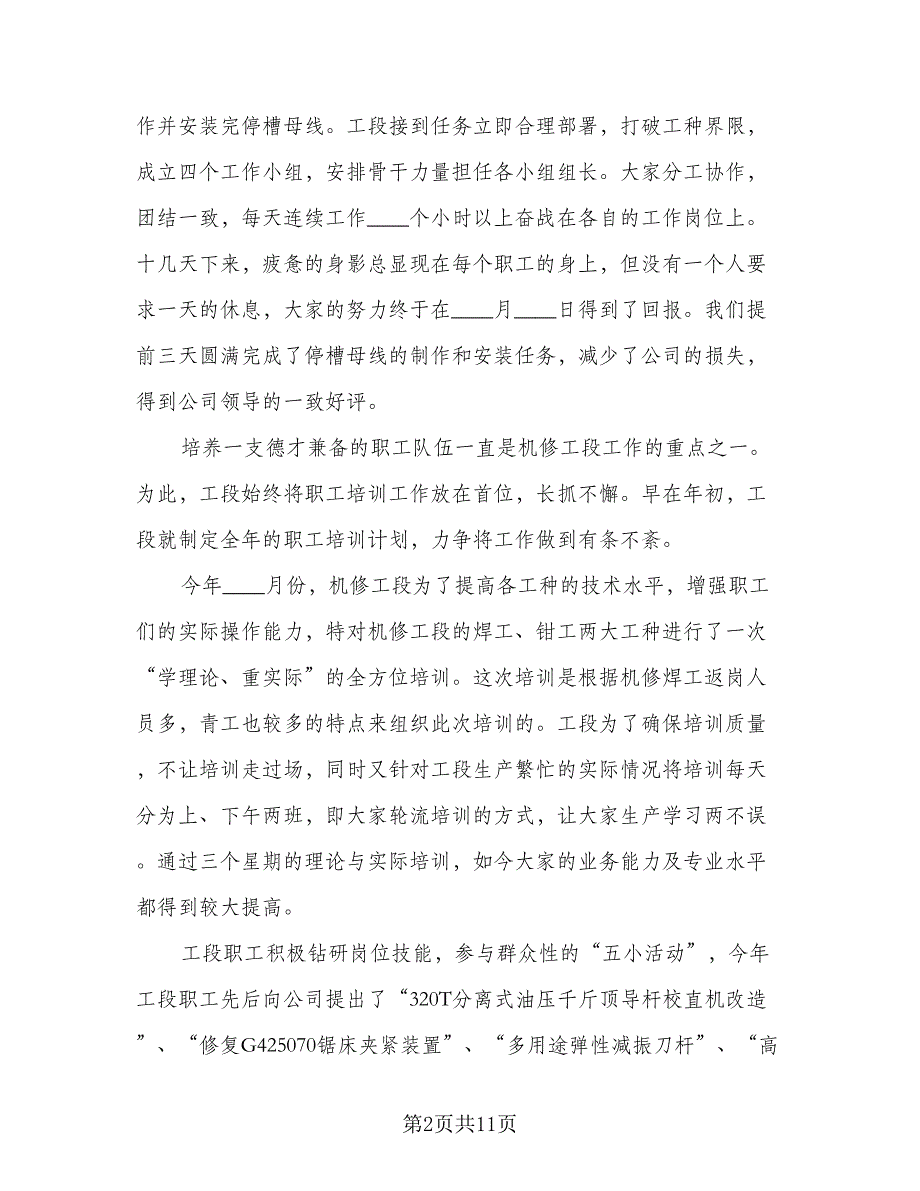 作并安装完停槽母线。工段接到任务立即合理部署，打破工种界限，
成立四个工作小组，安排骨干力量担任各小组组长。大家分工协作，
团结一致，每天连续工作____个小时以上奋战在各自的工作岗位上。
十几天下来，疲惫的身影总显现在每个职工的身上，但没有一个人要
求一天的休息，大家的努力终于在____月____日得到了回报。我们提
前三天圆满完成了停槽母线的制作和安装任务，减少了公司的损失，
得到公司领导的一致好评。
培养一支德才兼备的职工队伍一直是机修工段工作的重点之一。
为此，工段始终将职工培训工作放在首位，长抓不懈。早在年初，工
段就制定全年的职工培训计划，力争将工作做到有条不紊。
今年____月份，机修工段为了提高各工种的技术水平，增强职工
们的实际操作能力，特对机修工段的焊工、钳工两大工种进行了一次
“学理论、重实际”的全方位培训。这次培训是根据机修焊工返岗人
员多，青工也较多的特点来组织此次培训的。工段为了确保培训质量
，不让培训走过场，同时又针对工段生产繁忙的实际情况将培训每天
分为上、下午两班，即大家轮流培训的方式，让大家生产学习两不误
。通过三个星期的理论与实际培训，如今大家的业务能力及专业水平
都得到较大提高。
工段职工积极钻研岗位技能，参与群众性的“五小活动”，今年
工段职工先后向公司提出了“320T分离式油压千斤顶导杆校直机改造
”、“修复G425070锯床夹紧装置”、“多用途弹性减振刀杆”、“高
第2页共11页